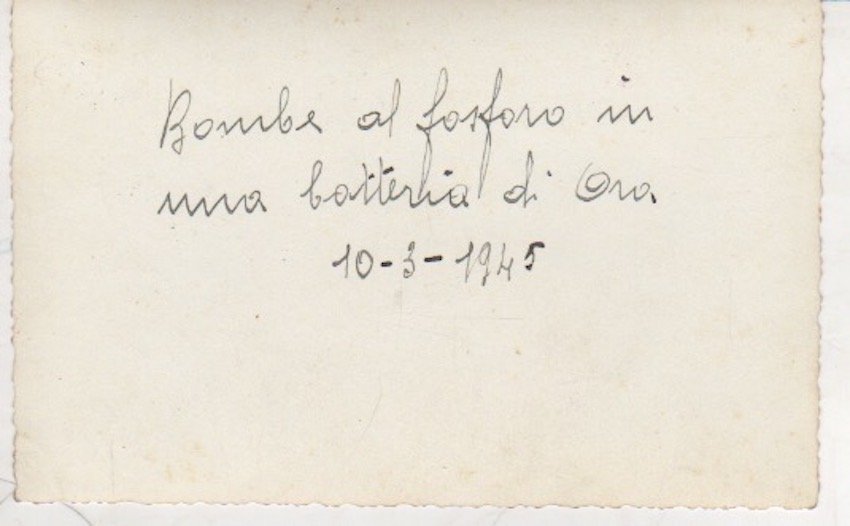 Bombe al fosforo in
una batteria di Ora
10-3-1945